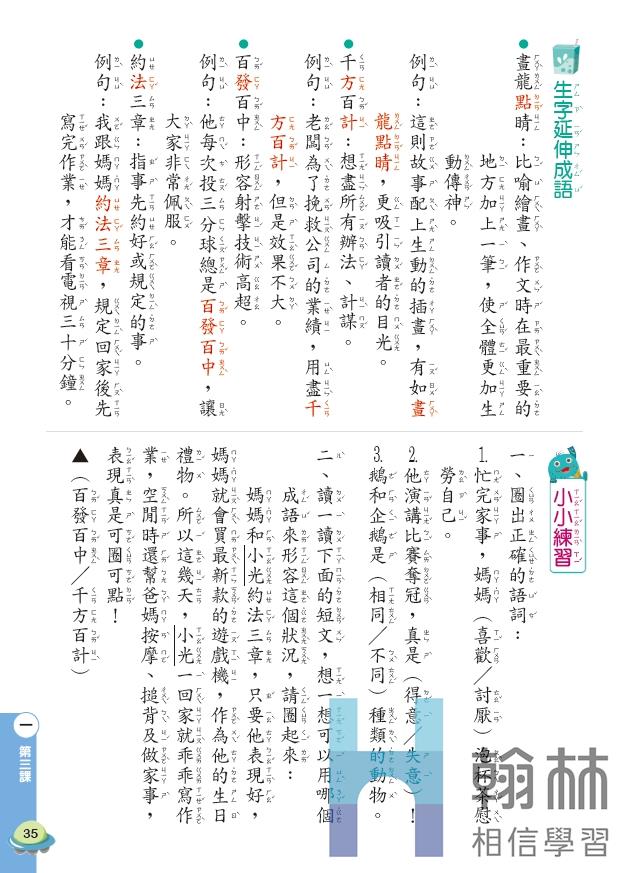 生字延伸成語
畫龍點睛：比喻繪畫、作文時在最重要的
地方加上一筆，使全體更加生
動傳神。
例句：這則故事配上生動的插畫，有如畫
龍點睛，更吸引讀者的目光。
千方百計：想盡所有辦法、計謀。
例句：老闆為了挽救公司的業績，用盡千
方百計，但是效果不大。
百發百中：形容射擊技術高超。
例句：他每次投三分球總是百發百中，讓
大家非常佩服。
約法三章：指事先約好或規定的事。
例句：我跟媽媽約法三章，規定回家後先
寫完作業，才能看電視三十分鐘。
小小練習
一、圈出正確的語詞：
1. 忙完家事，媽媽（喜歡／討厭）泡杯茶慰
勞自己。
2. 他演講比賽奪冠，真是（得意／失意）！
3. 鵝和企鵝是（相同／不同）種類的動物。
二、讀一讀下面的短文，想一想可以用哪個
成語來形容這個狀況，請圈起來：
媽媽和小光約法三章，只要他表現好，
媽媽就會買最新款的遊戲機，作為他的生日
禮物。所以這幾天，小光一回家就乖乖寫作
業，空閒時還幫爸媽按摩、搥背及做家事，
表現真是可圈可點！
▲（百發百中／千方百計）
一
第三課
35
H
翰林
相信學習